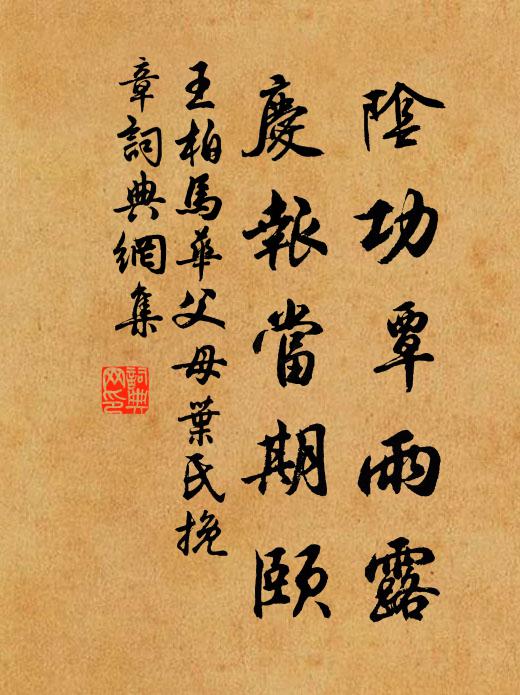 陰功覃雨露
慶報當期頤
王柏馬華父母葉氏挽
章詞典網集
詞典網印